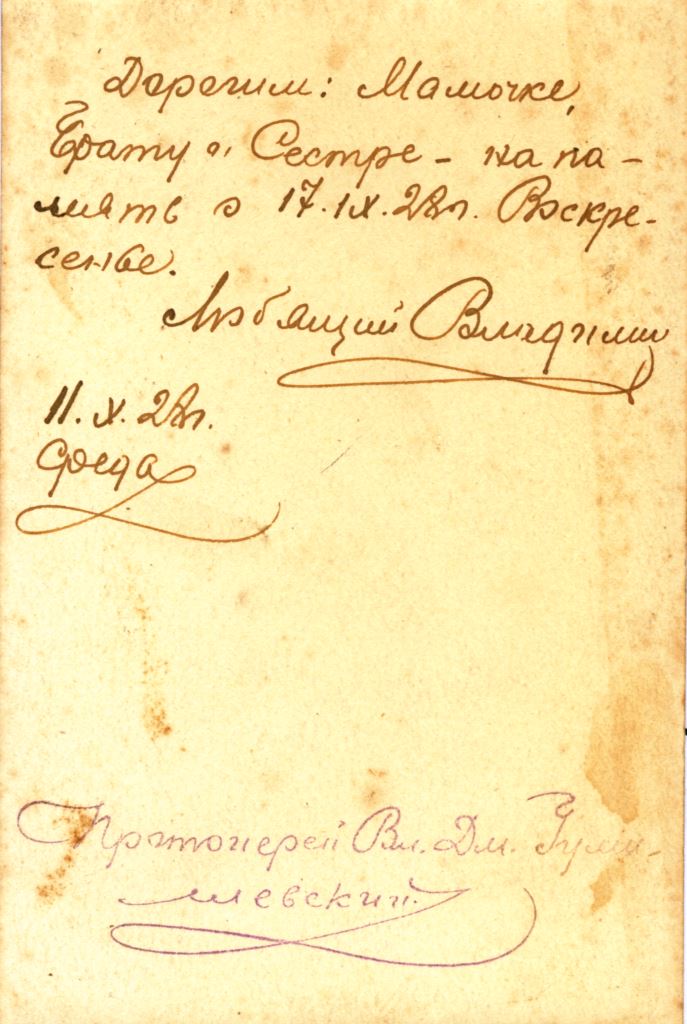 Дорогим: Мамочке,
Брату и Сестре - на па-
мять о 17.IX.28г. Воскре-
сенье.
Любящий Владимир
11.X.28г.
Среда
Протоиерей Вл. Дм.